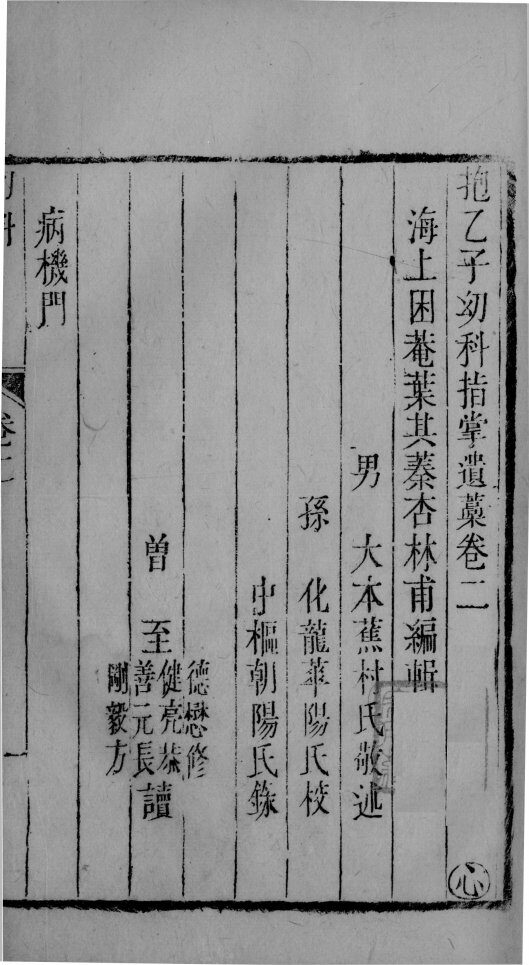 抱乙子幼科指掌遺藁卷二
海上困菴葉其蓁杏林甫編輯
男 大本蕉村氏敬述
孫 化龍萃陽氏校
中樞朝陽氏錄
德懋修
曾 至健亮恭讀
善元長
剛毅方
病機門
卷二
一
心